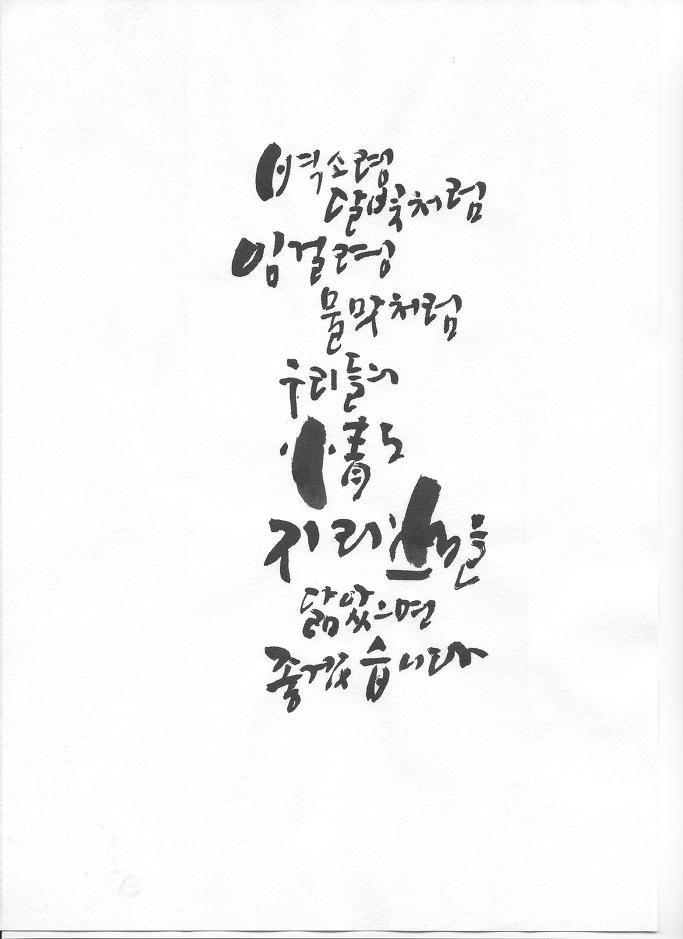 벽소령
달빛처럼
임걸령
물맛처럼
우리들의
情도
지리산을
닮았으면
좋겠습니다